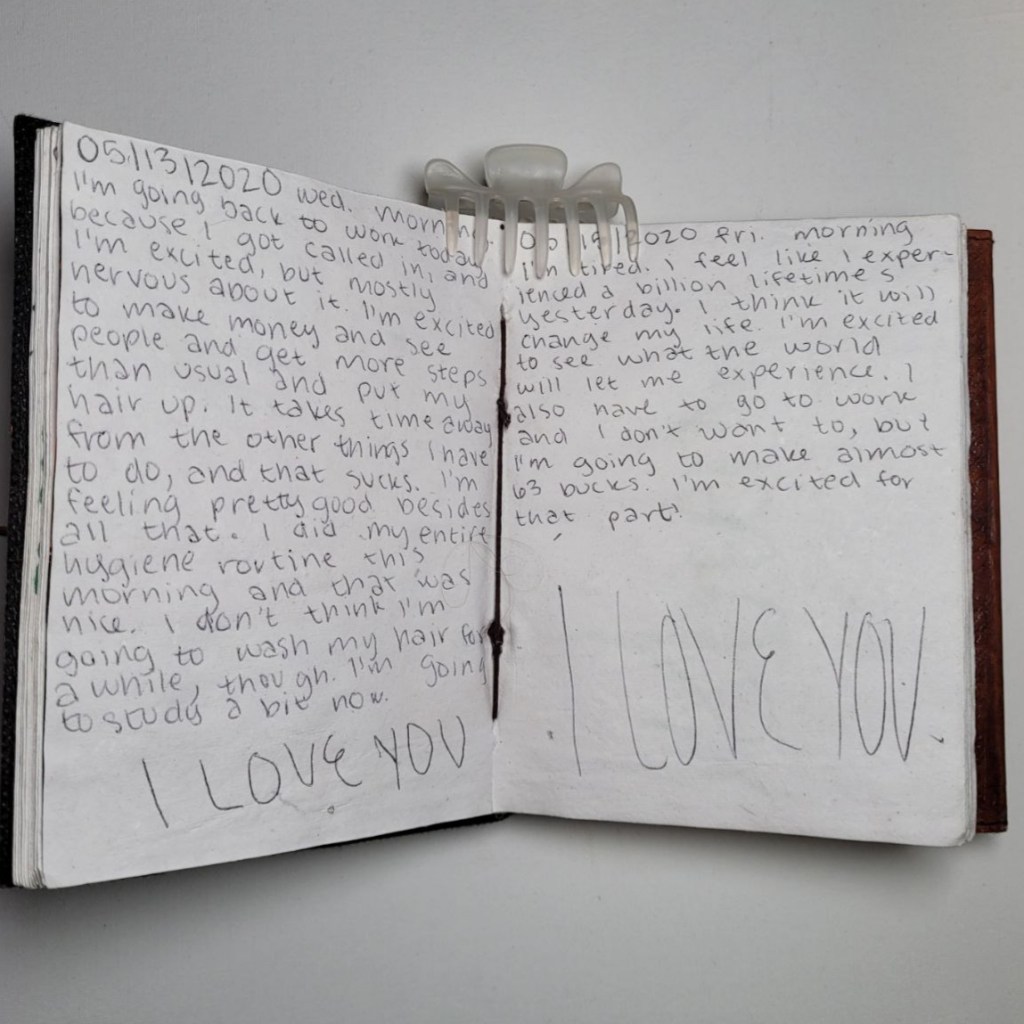 05/13/2020 wed. morning.
I'm going back to work today
because I got called in, and
I'm excited, but mostly
nervous about it. I'm excited
to make money and see
people and get more steps
than usual and put my
hair up. It takes time away
from the other things I have
to do, and that sucks. I'm
feeling pretty good besides
all that. I did my entire
hygiene routine this
morning and that was
nice. I don't think I'm
going to wash my hair for
a while, though. I'm going
to study a bit now.
I LOVE YOU
2020 fri. morning
I'm tired. I feel like I exper-
ienced a billion lifetimes
yesterday. I think it will
change my life. I'm excited
to see what the world
will let me experience. I
also have to go to work
and I don't want to, but
I'm going to make almost
63 bucks. I'm excited for
that part!
I LOVE YOU.